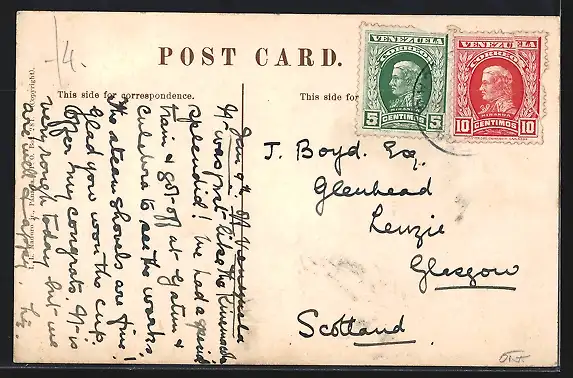 /4.
POST CARD.
This side for correspondence.
This side for
VENEZUELA
CORREOS
MIRANDA
5 CENTIMOS 5
VENEZUELA
CORREOS
MIRANDA
10 CENTIMOS 10
Jan 9th. Venezuela
It was just like the
splendid! We had a special
train & got off at Gatun &
Culebra to see the works
The steam shovels are fine!
Glad you won the cup.
Offer my congrats. It is
very rough today but we
are well & happy.
J. Boyd. Esq.
Glenhead
Lenzie
Glasgow
Scotland